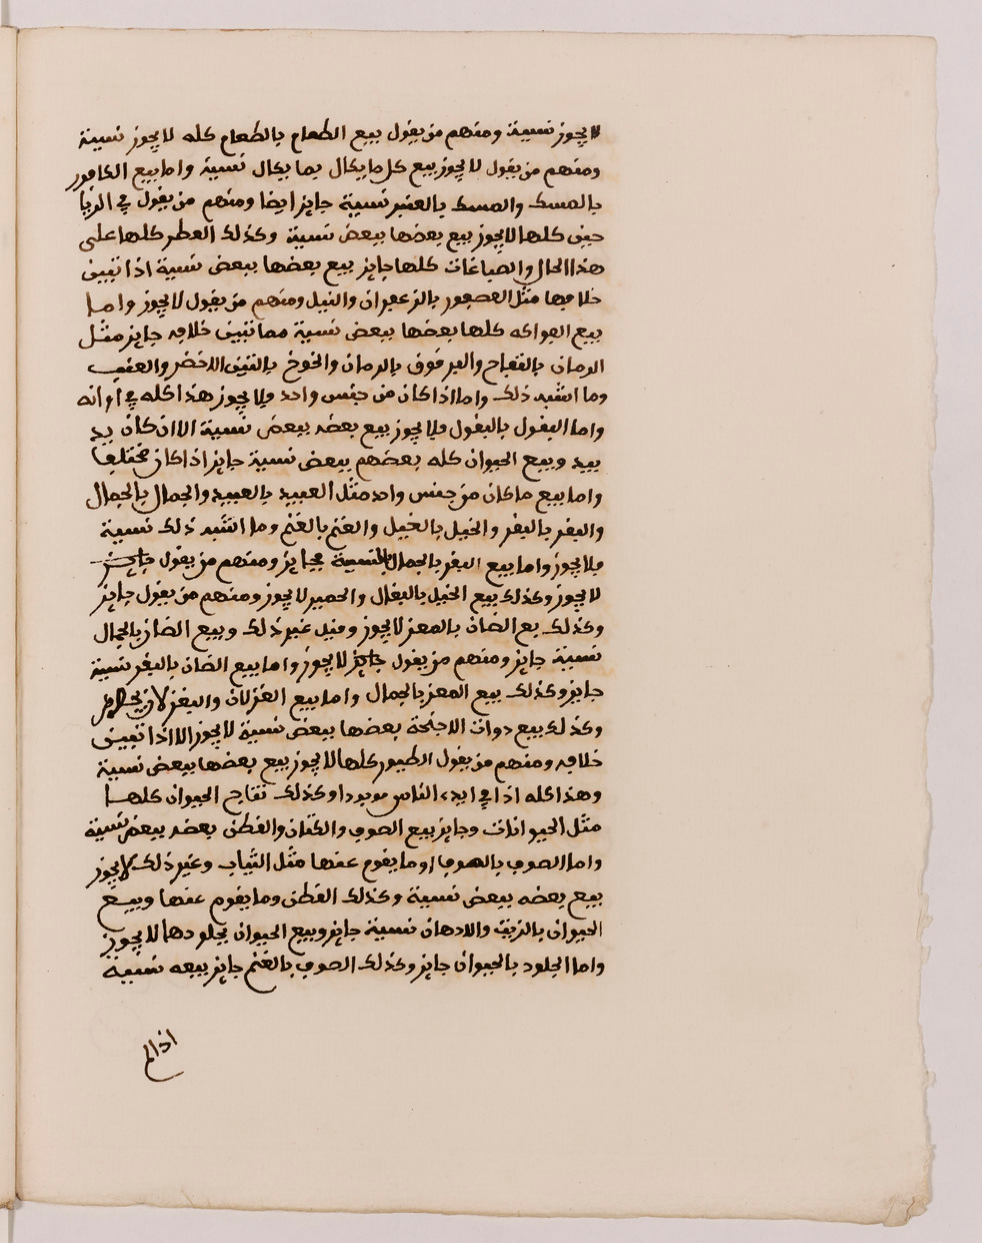 لا يجوز نسيئة ومنهم من يقول بيع الطعام بالطعام كله لا يجوز نسيئة
ومنهم من يقول لا يجوز بيع كل ما يكال بما يكال نسيئة واما بيع الكافور
بالمسك والمسك بالعنبر نسيئة جايز ايضا ومنهم من يقول في الربا
حتى كلها لا يجوز بيع بعضها ببعض نسيئة وكذلك العطر كلها على
هذا الحال والصباغات كلها جايز بيع بعضها ببعض نسيئة اذا تبين
خلافها مثل العصفور بالزعفران والنيل ومنهم من يقول لا يجوز واما
بيع الفواكه كلها بعضها ببعض نسيئة مما تبين خلافه جايز مثل
الرمان بالتفاح والبرقوق بالرمان والخوخ بالتين الاخضر والعنب
وما اشبه ذلك واما اذا كان من جنس واحد فلا يجوز هذا كله في اوانه
واما البقول بالبقول فلا يجوز بيع بعضه ببعض نسيئة الا ان كان يد
بيد وبيع الحيوان كله بعضهم ببعض نسيئة جايز اذا كان مختلفا
واما بيع ما كان من جنس واحد مثل العبيد بالعبيد والجمال بالجمال
والبقر بالبقر والخيل بالخيل والغنم بالغنم وما اشبه ذلك نسيئة
فلا يجوز واما بيع البقر بالجمال بالنسيئة فجايز ومنهم من يقول جايز
لا يجوز وكذلك بيع الخيل بالبغال والحمير لا يجوز ومنهم من يقول جايز
وكذلك بع الضان بالمعز لا يجوز وقيل غير ذلك وبيع الضان بالجمال
نسيئة جايز ومنهم من يقول جايز لا يجوز واما بيع الضان بالبقر نسيئة
جايز وكذلك بيع المعز بالجمال واما بيع الغزلان والبقر
وكذلك بيع دوات الاجنحة بعضها ببعض نسيئة لا يجوز الا اذا تبين
خلافه ومنهم من يقول الطيور كلها لا يجوز بيع بعضها ببعض نسيئة
وهذا كله اذا في ايدء الناس موجودا وكذلك نتاج الحيوان كلها
مثل الحيوانات وجايز بيع الصوف والكتان والقطن بعضه ببعض نسيئة
واما الصوف بالصوف او ما يقوم عنها مثل الثياب وغير ذلك لا يجوز
بيع بعضه ببعض نسيئة وكذلك القطن وما يقوم عنها وبيع
الحيوان بالزيت والادهان نسيئة جايز وبيع الحيوان بجلودها لا يجوز
واما الجلود بالحيوان جايز وكذلك الصوف بالغنم جايز بيعه نسيئة
اذا لم